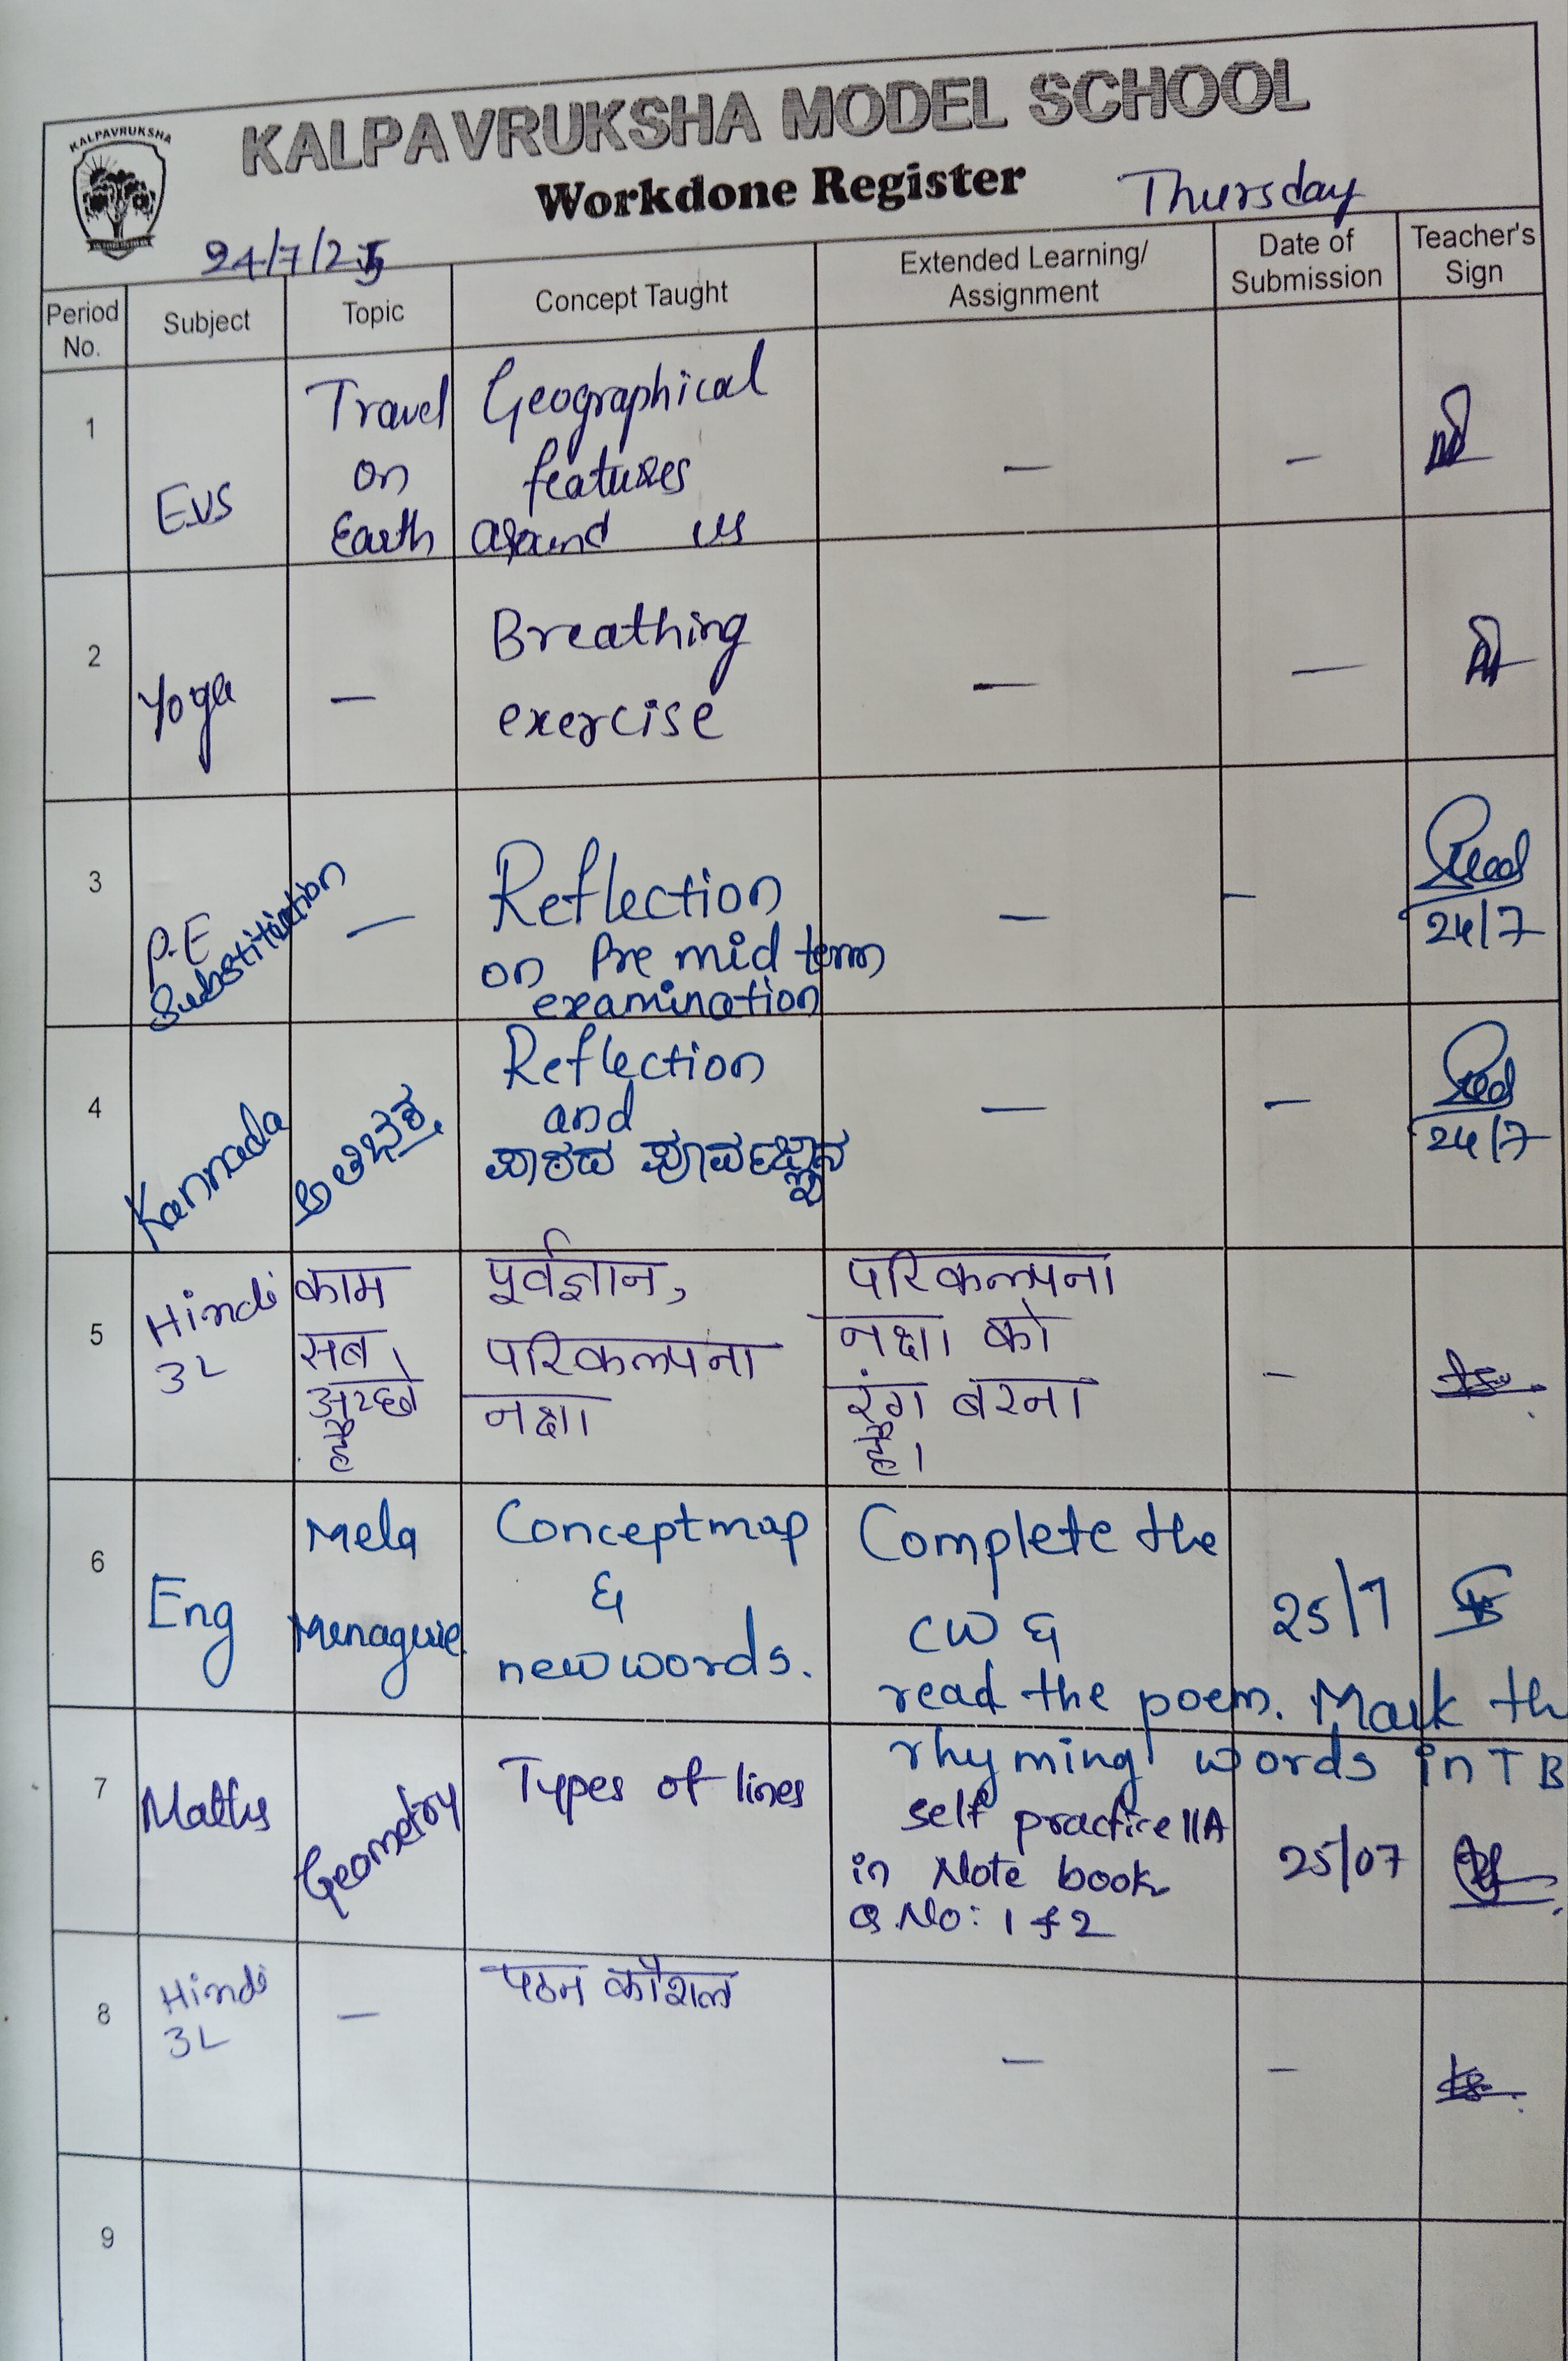 KALPAVRUKSHA
KALPAVRUKSHA MODEL SCHOOL
Workdone Register
Thursday
24/7/25
Period No.
Subject
Topic
Concept Taught
Extended Learning/
Assignment
Date of
Submission
Teacher's
Sign
1
EVS
Travel
on
Earth
Geographical
features
around us
—
—
2
Yoga
—
Breathing
exercise
—
—
3
P.E
Substitution
—
Reflection
on Pre mid term
examination
—
—
24/7
4
Kannada
Reflection
and
ಪಾಠದ ಪೂರ್ವಜ್ಞಾನ
—
—
24/7
5
Hindi
3L
काम
सब
अच्छे
है
पूर्वज्ञान,
परिकल्पना
नक्षा
परिकल्पना
नक्षा को
रंग बरना
है।
-
6
Eng
Mela
Conceptmap
&
new words.
Complete the
CW &
read the poem. Mark th
rhyming words in TB
25/7
7
Maths
Geometry
Types of lines
self practice 11A
in Note book
Q.No: 1 & 2
25/07
8
Hindi
3L
—
पठन कौशल
—
-
9